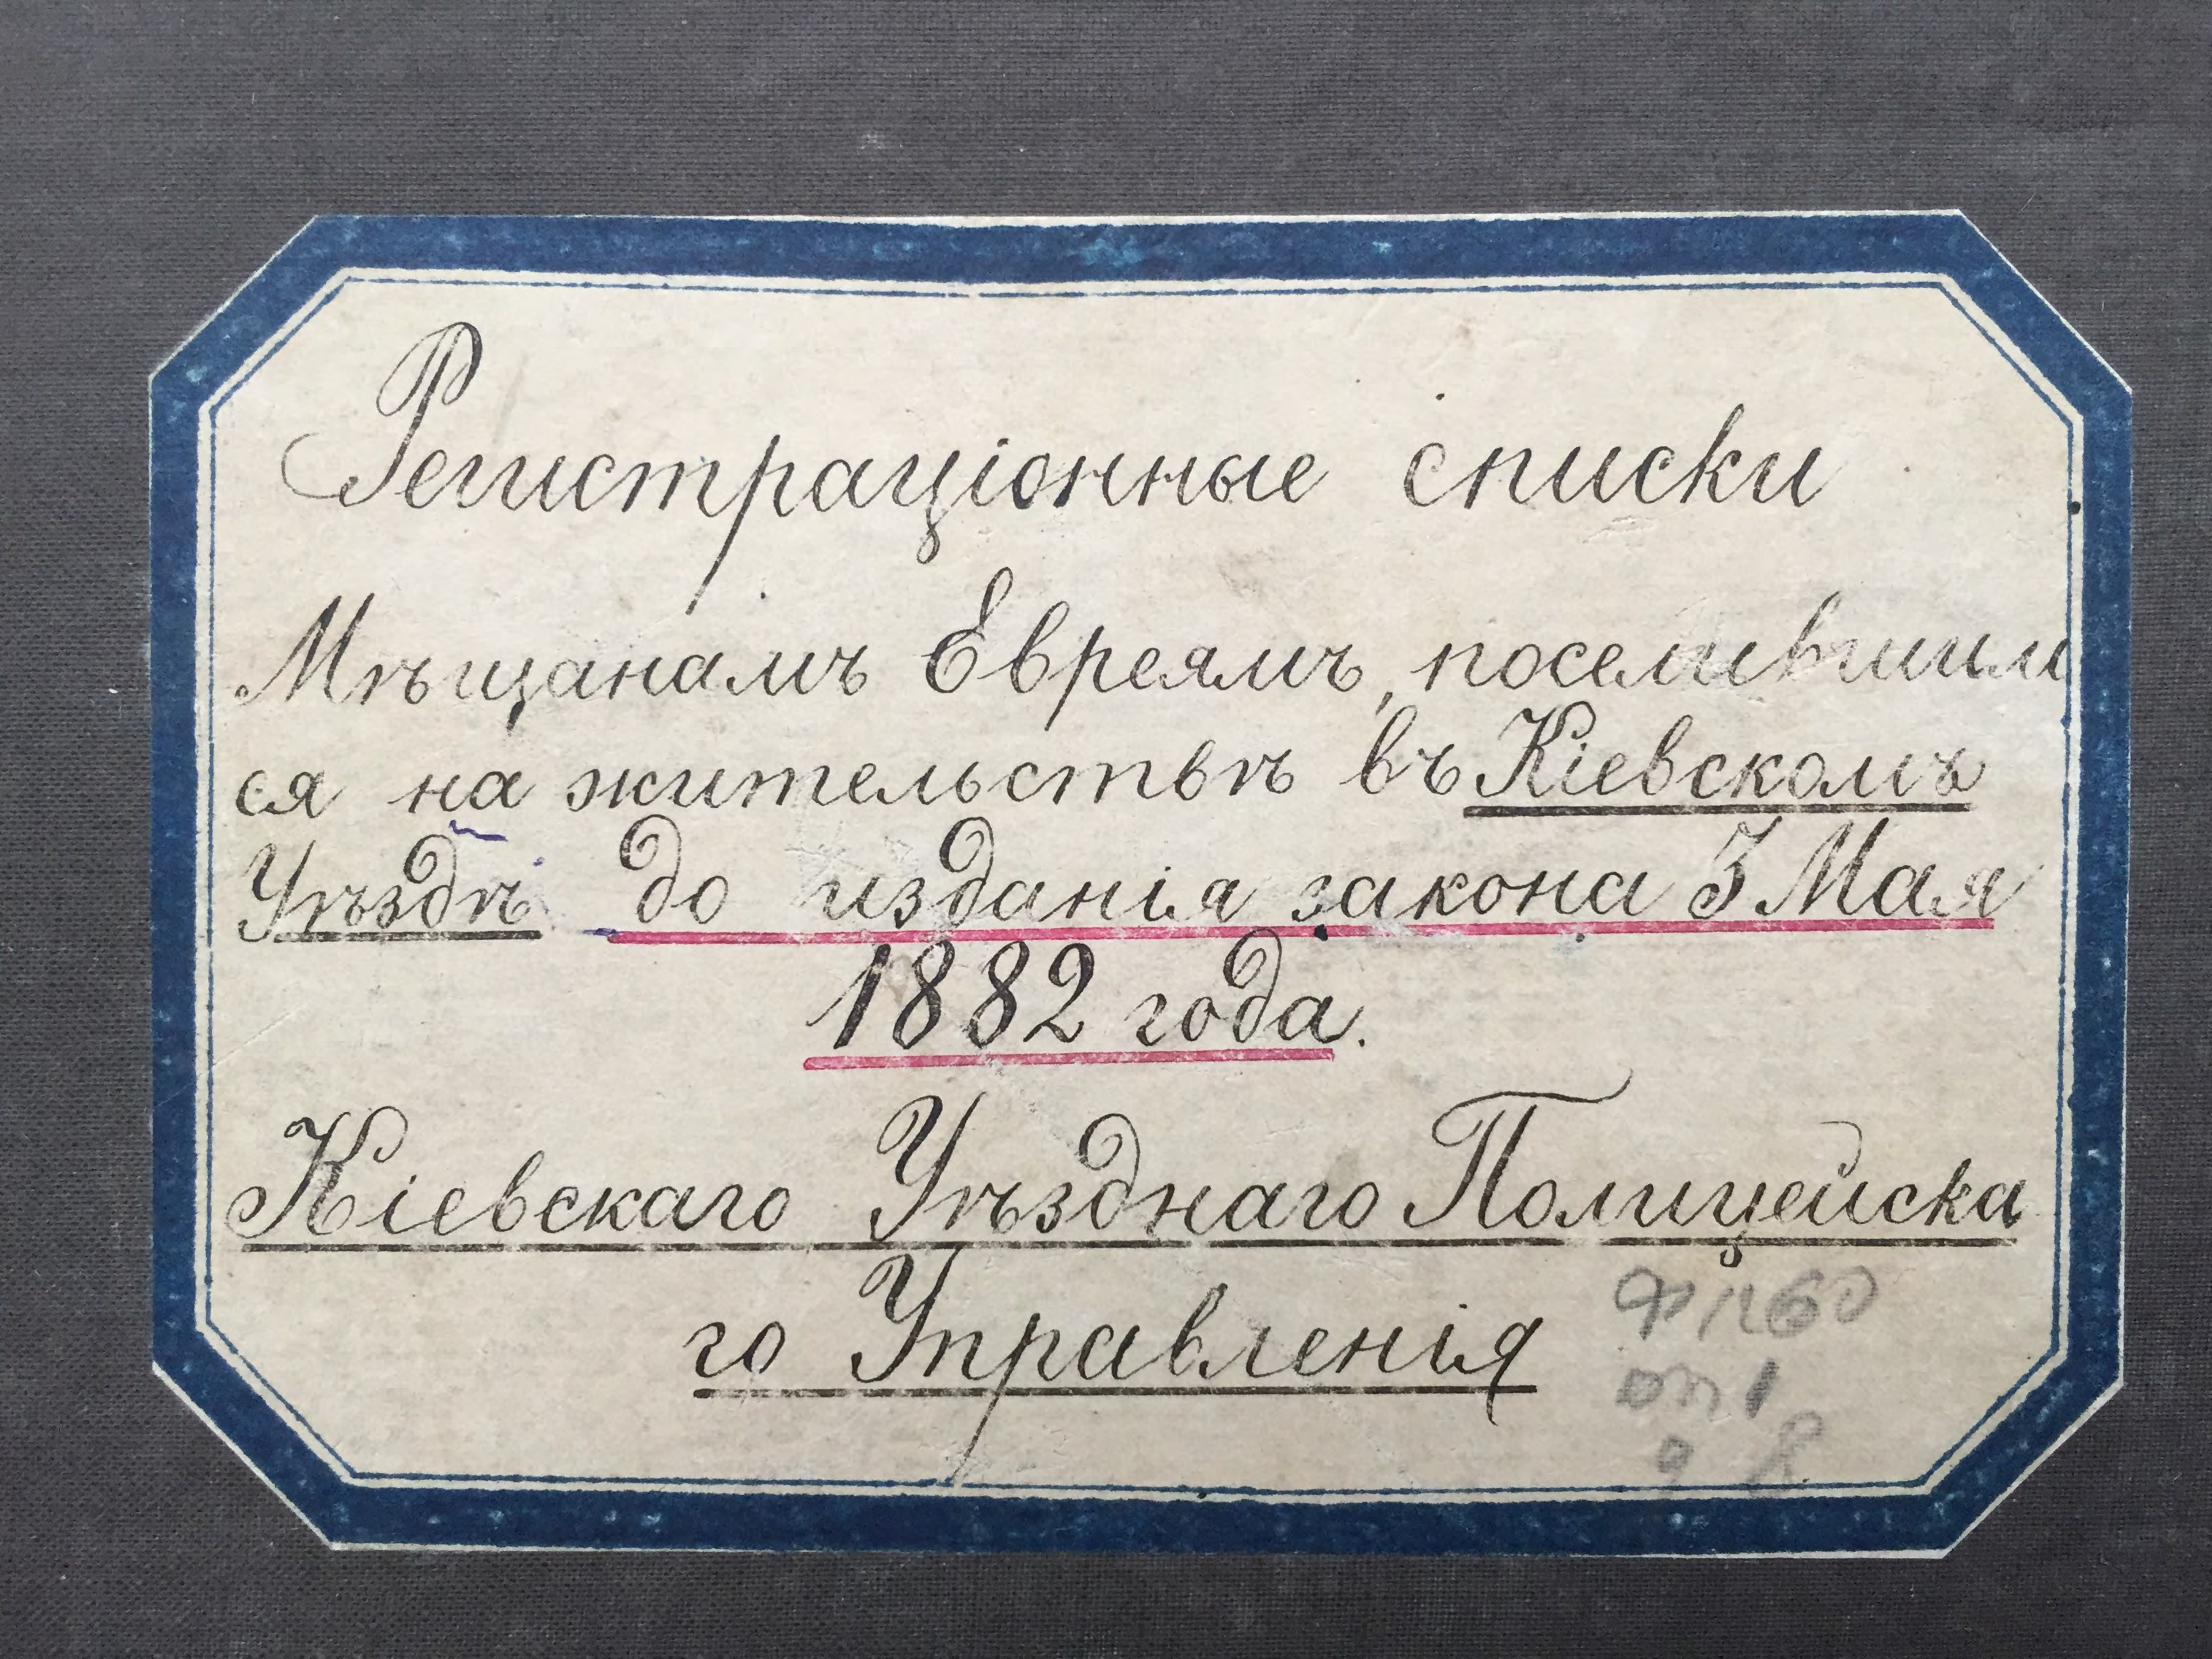 Регистраціонные списки
Мѣщанамъ Евреямъ, поселившим
ся на жительствѣ въ Кіевскомъ
Уѣздѣ до изданія закона 3 Мая
1882 года.
Кіевскаго Уѣзднаго Полицейска
го Управленія
Ф 1260
оп 1
8